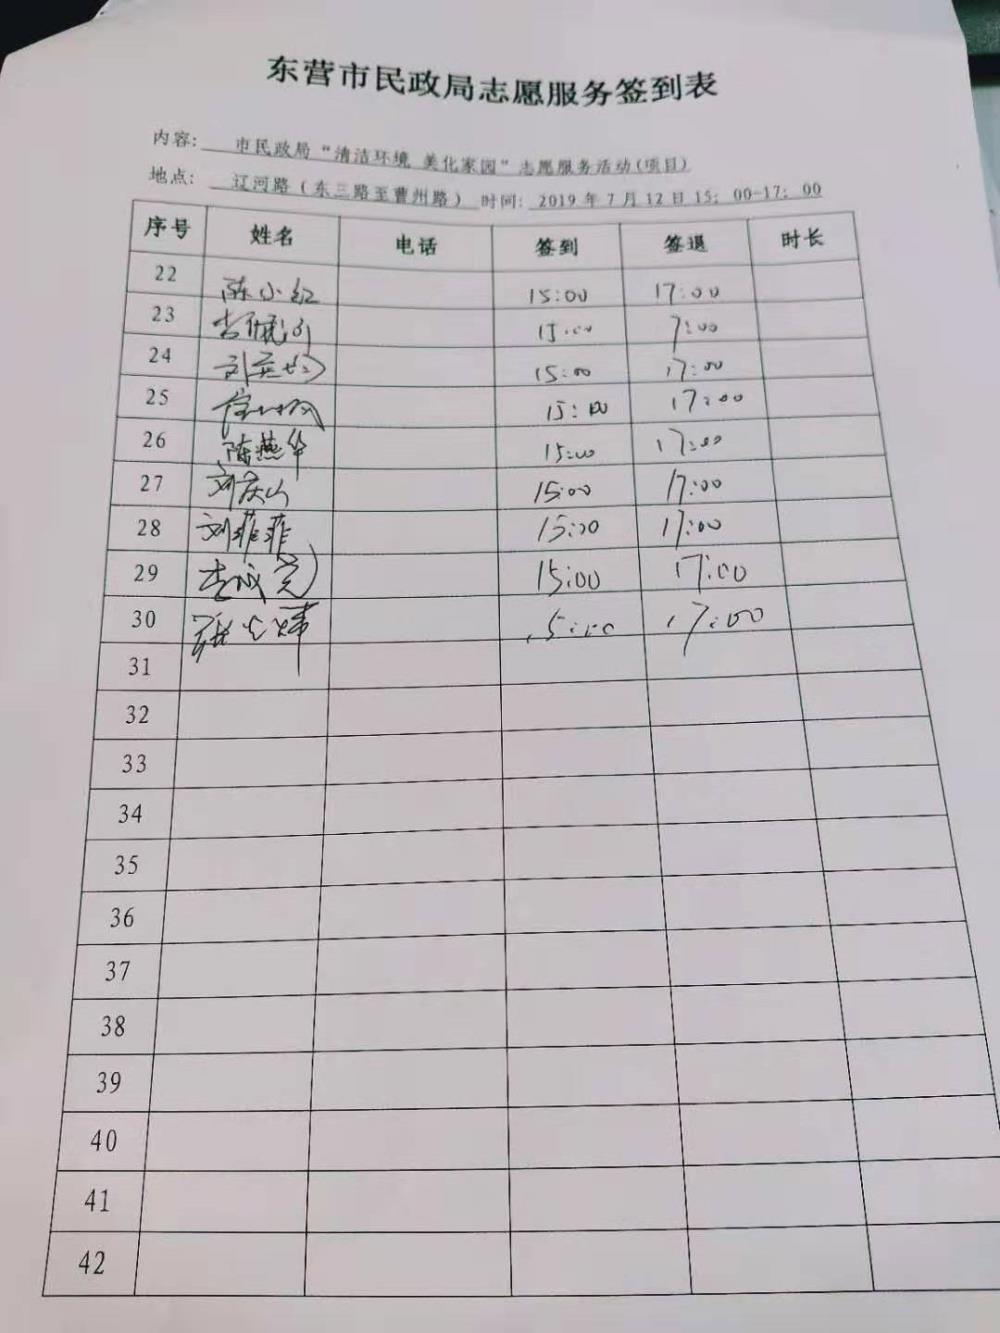 东营市民政局志愿服务签到表
内容: 市民政局“清洁环境 美化家园”志愿服务活动(项目)
地点: 辽河路(东三路至曹州路) 时间: 2019年7月12日15: 00-17: 00
序号 姓名 电话 签到 签退 时长
22 陈小红 15:00 17:00
23 15:00 7:00
24 15:00 17:00
25 15:00 17:00
26 陈燕华 15:00 17:00
27 刘庆山 15:00 17:00
28 刘菲菲 15:00 17:00
29 15:00 17:00
30 5:00 17:00
31
32
33
34
35
36
37
38
39
40
41
42